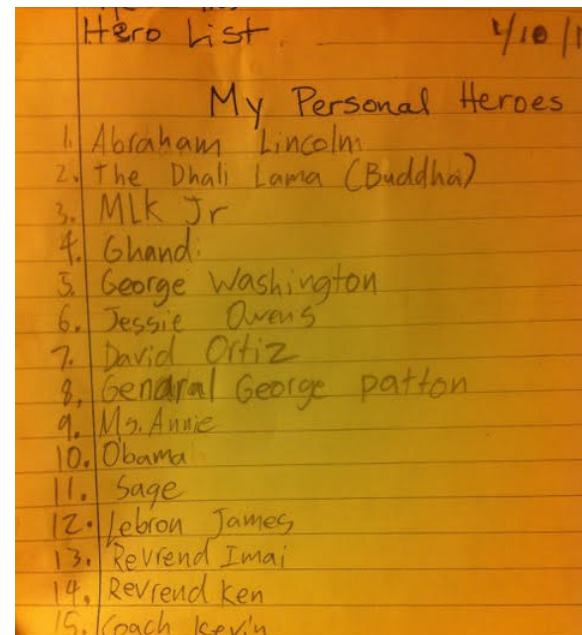 Hero List 4/10/1
My Personal Heroes
1. Abraham Lincolm
2. The Dhali Lama (Buddha)
3. MLK Jr
4. Ghandi
5. George Washington
6. Jessie Owens
7. David Ortiz
8. Genaral George patton
9. Ms. Annie
10. Obama
11. Sage
12. Lebron James
13. Revrend Imai
14. Revrend Ken
15. Coach Kevin